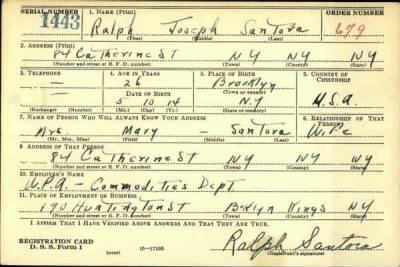 SERIAL NUMBER 1. NAME (Print) ORDER NUMBER
1443 Ralph Joseph Santora 679
(First) (Middle) (Last)
2. ADDRESS (Print)
84 Catherine St NY NY NY
(Number and street or R. F. D. number) (Town) (County) (State)
3. TELEPHONE 4. AGE IN YEARS 5. PLACE OF BIRTH 6. COUNTRY OF CITIZENSHIP
— 26 Brooklyn
DATE OF BIRTH (Town or county)
— 5 10 14 N.Y. U.S.A.
(Exchange) (Number) (Mo.) (Day) (Yr.) (State or country)
7. NAME OF PERSON WHO WILL ALWAYS KNOW YOUR ADDRESS 8. RELATIONSHIP OF THAT PERSON
Mrs. Mary — Santora Wife
(Mr., Mrs., Miss) (First) (Middle) (Last)
9. ADDRESS OF THAT PERSON
84 Catherine St NY NY NY
(Number and street or R. F. D. number) (Town) (County) (State)
10. EMPLOYER'S NAME
W.P.A. — Commodities Dept
11. PLACE OF EMPLOYMENT OR BUSINESS
190 Huntington St Bklyn Kings NY
(Number and street or R. F. D. number) (Town) (County) (State)
I AFFIRM THAT I HAVE VERIFIED ABOVE ANSWERS AND THAT THEY ARE TRUE.
REGISTRATION CARD
D. S. S. Form 1 (over) 16—17105 Ralph Santora
(Registrant's signature)